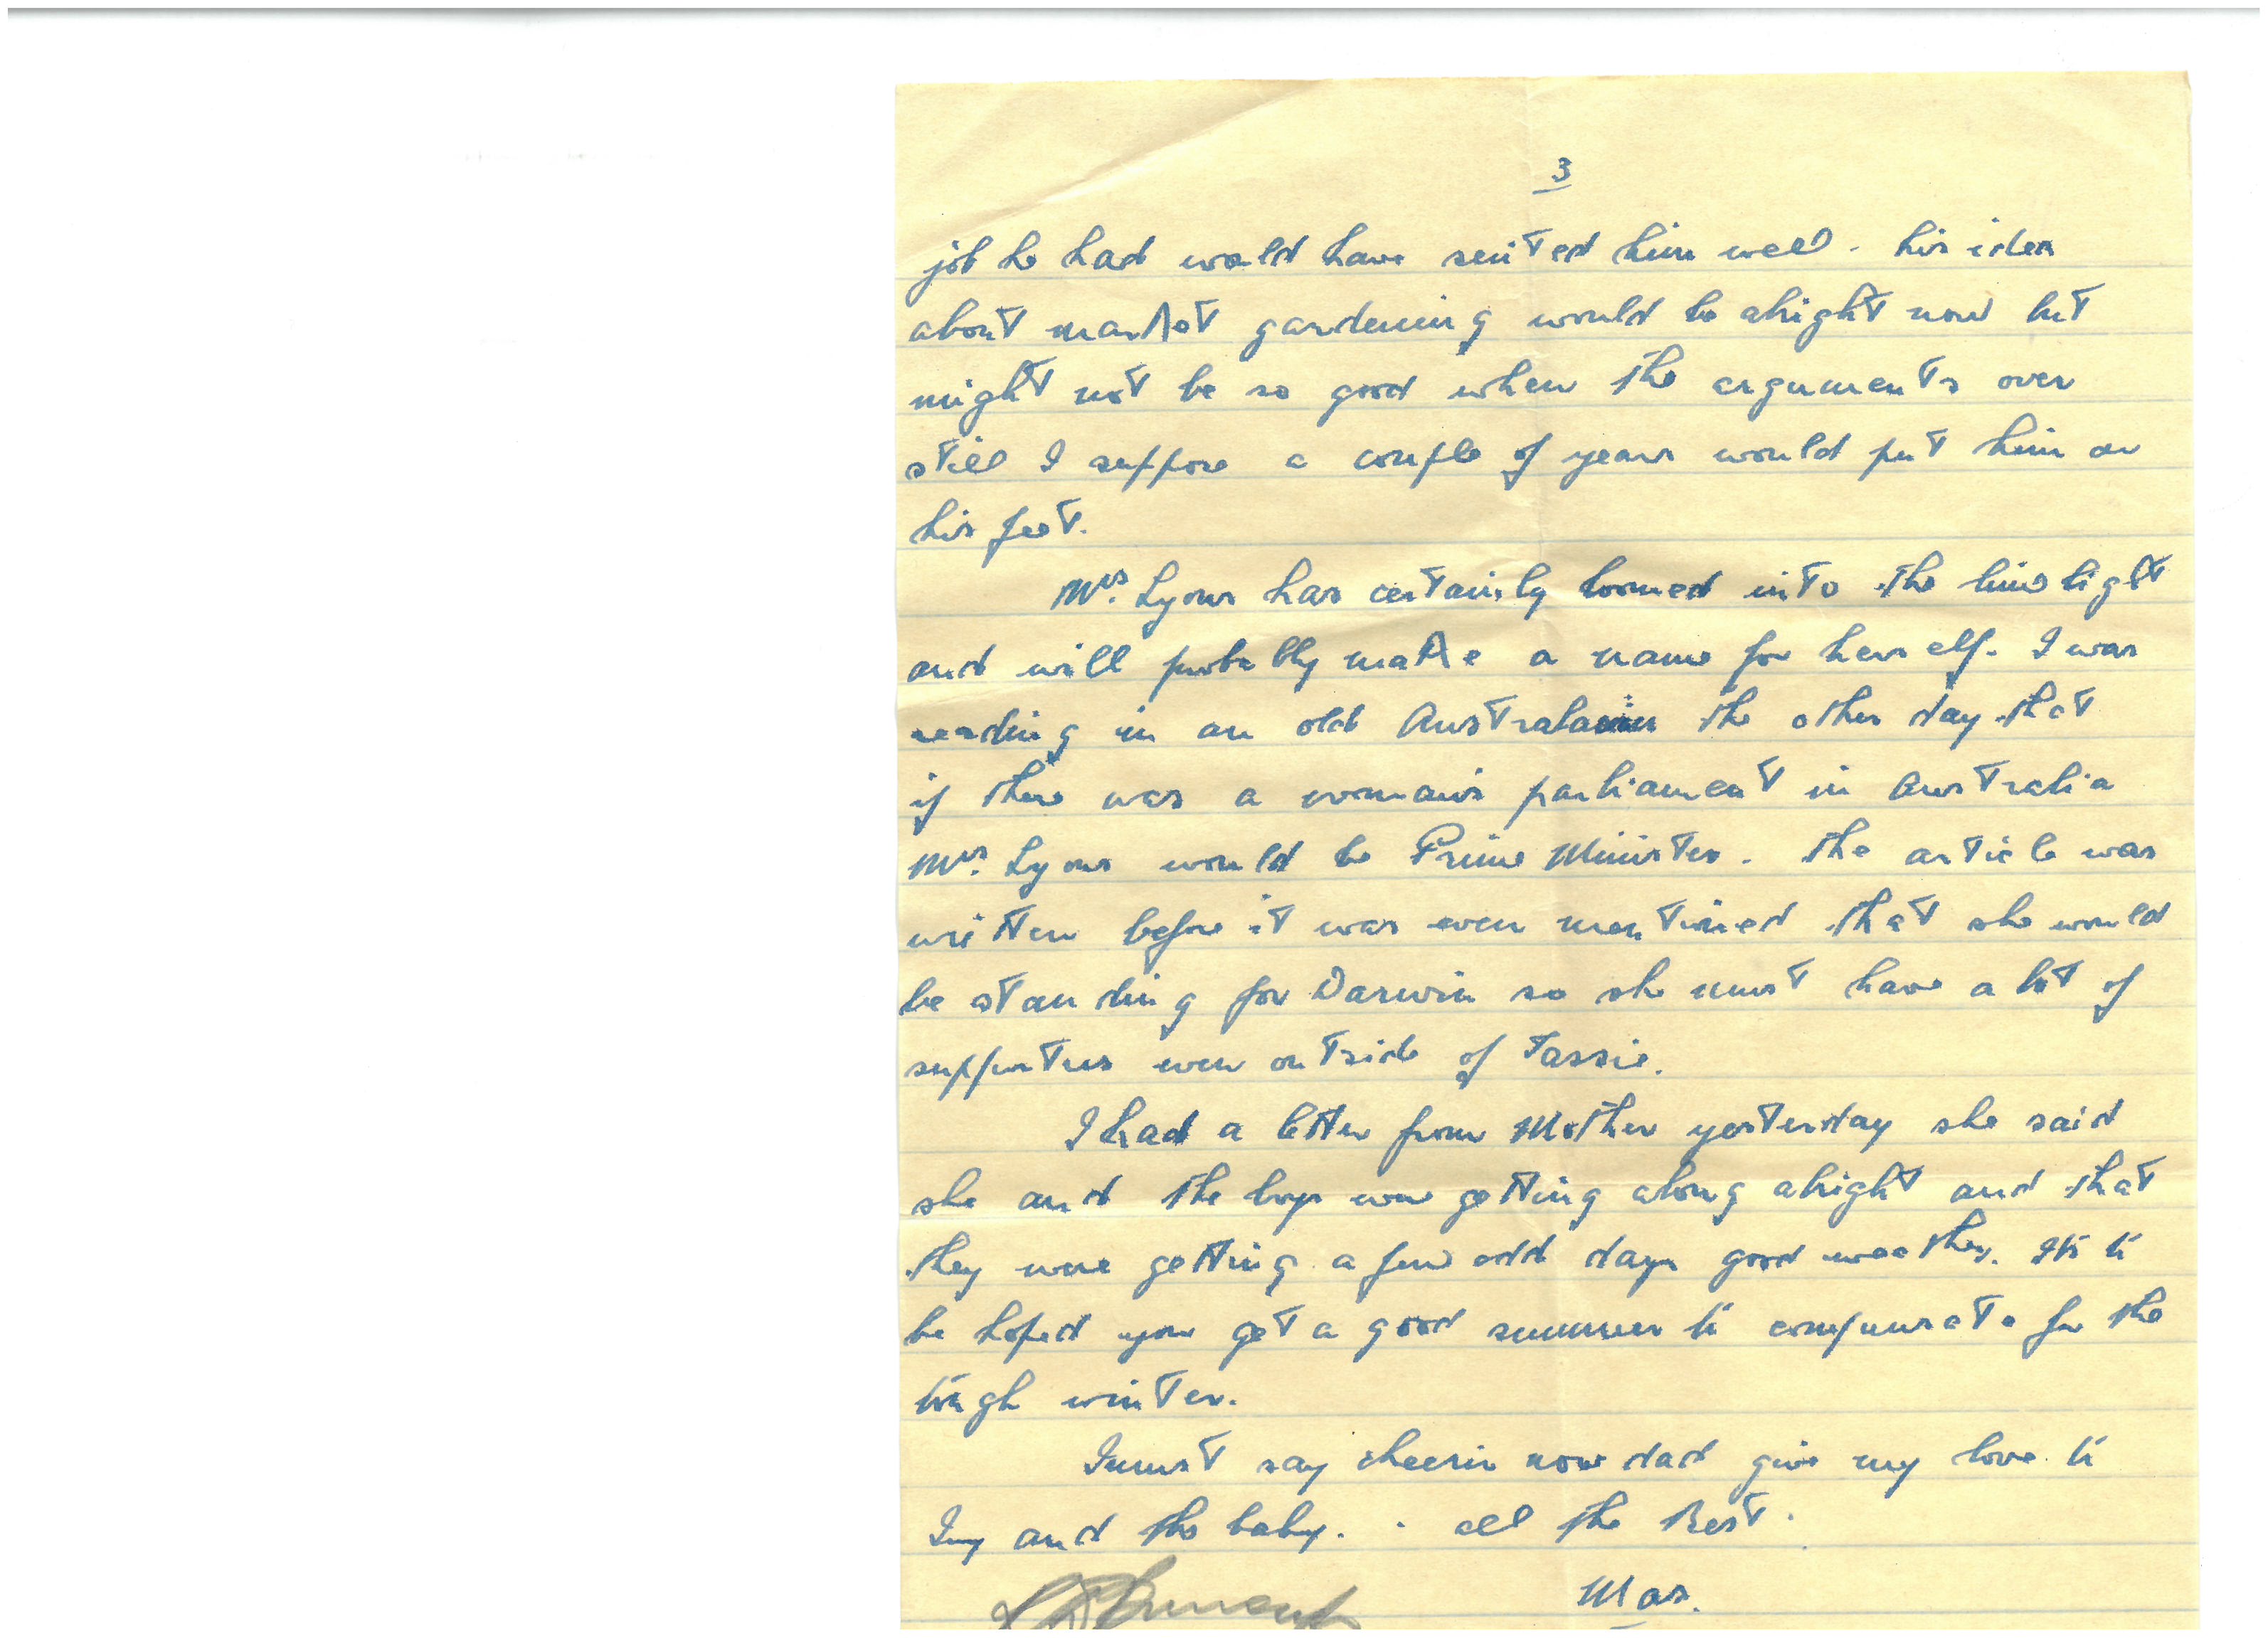 3
job he had would have suited him well. his idea
about market gardening would be alright now but
might not be so good when the arguments over
still I suppose a couple of years would put him on
his feet.
Mrs. Lyons has certainly loomed into the limelight
and will probably make a name for herself. I was
reading in an old the other day that
if there was a woman's parliament in Australia
Mrs. Lyons would be Prime Minister. The article was
written before it was even mentioned that she would
be standing for Darwin so she must have a lot of
supporters even outside of Tassie.
I had a letter from Mother yesterday she said
she and the boys were getting along alright and that
they were getting a few odd days good weather. Its to
be hoped you get a good summer to compensate for the
tough winter.
I must say cheerio now dad give my love to
and the baby. - all the Best.
Mas.